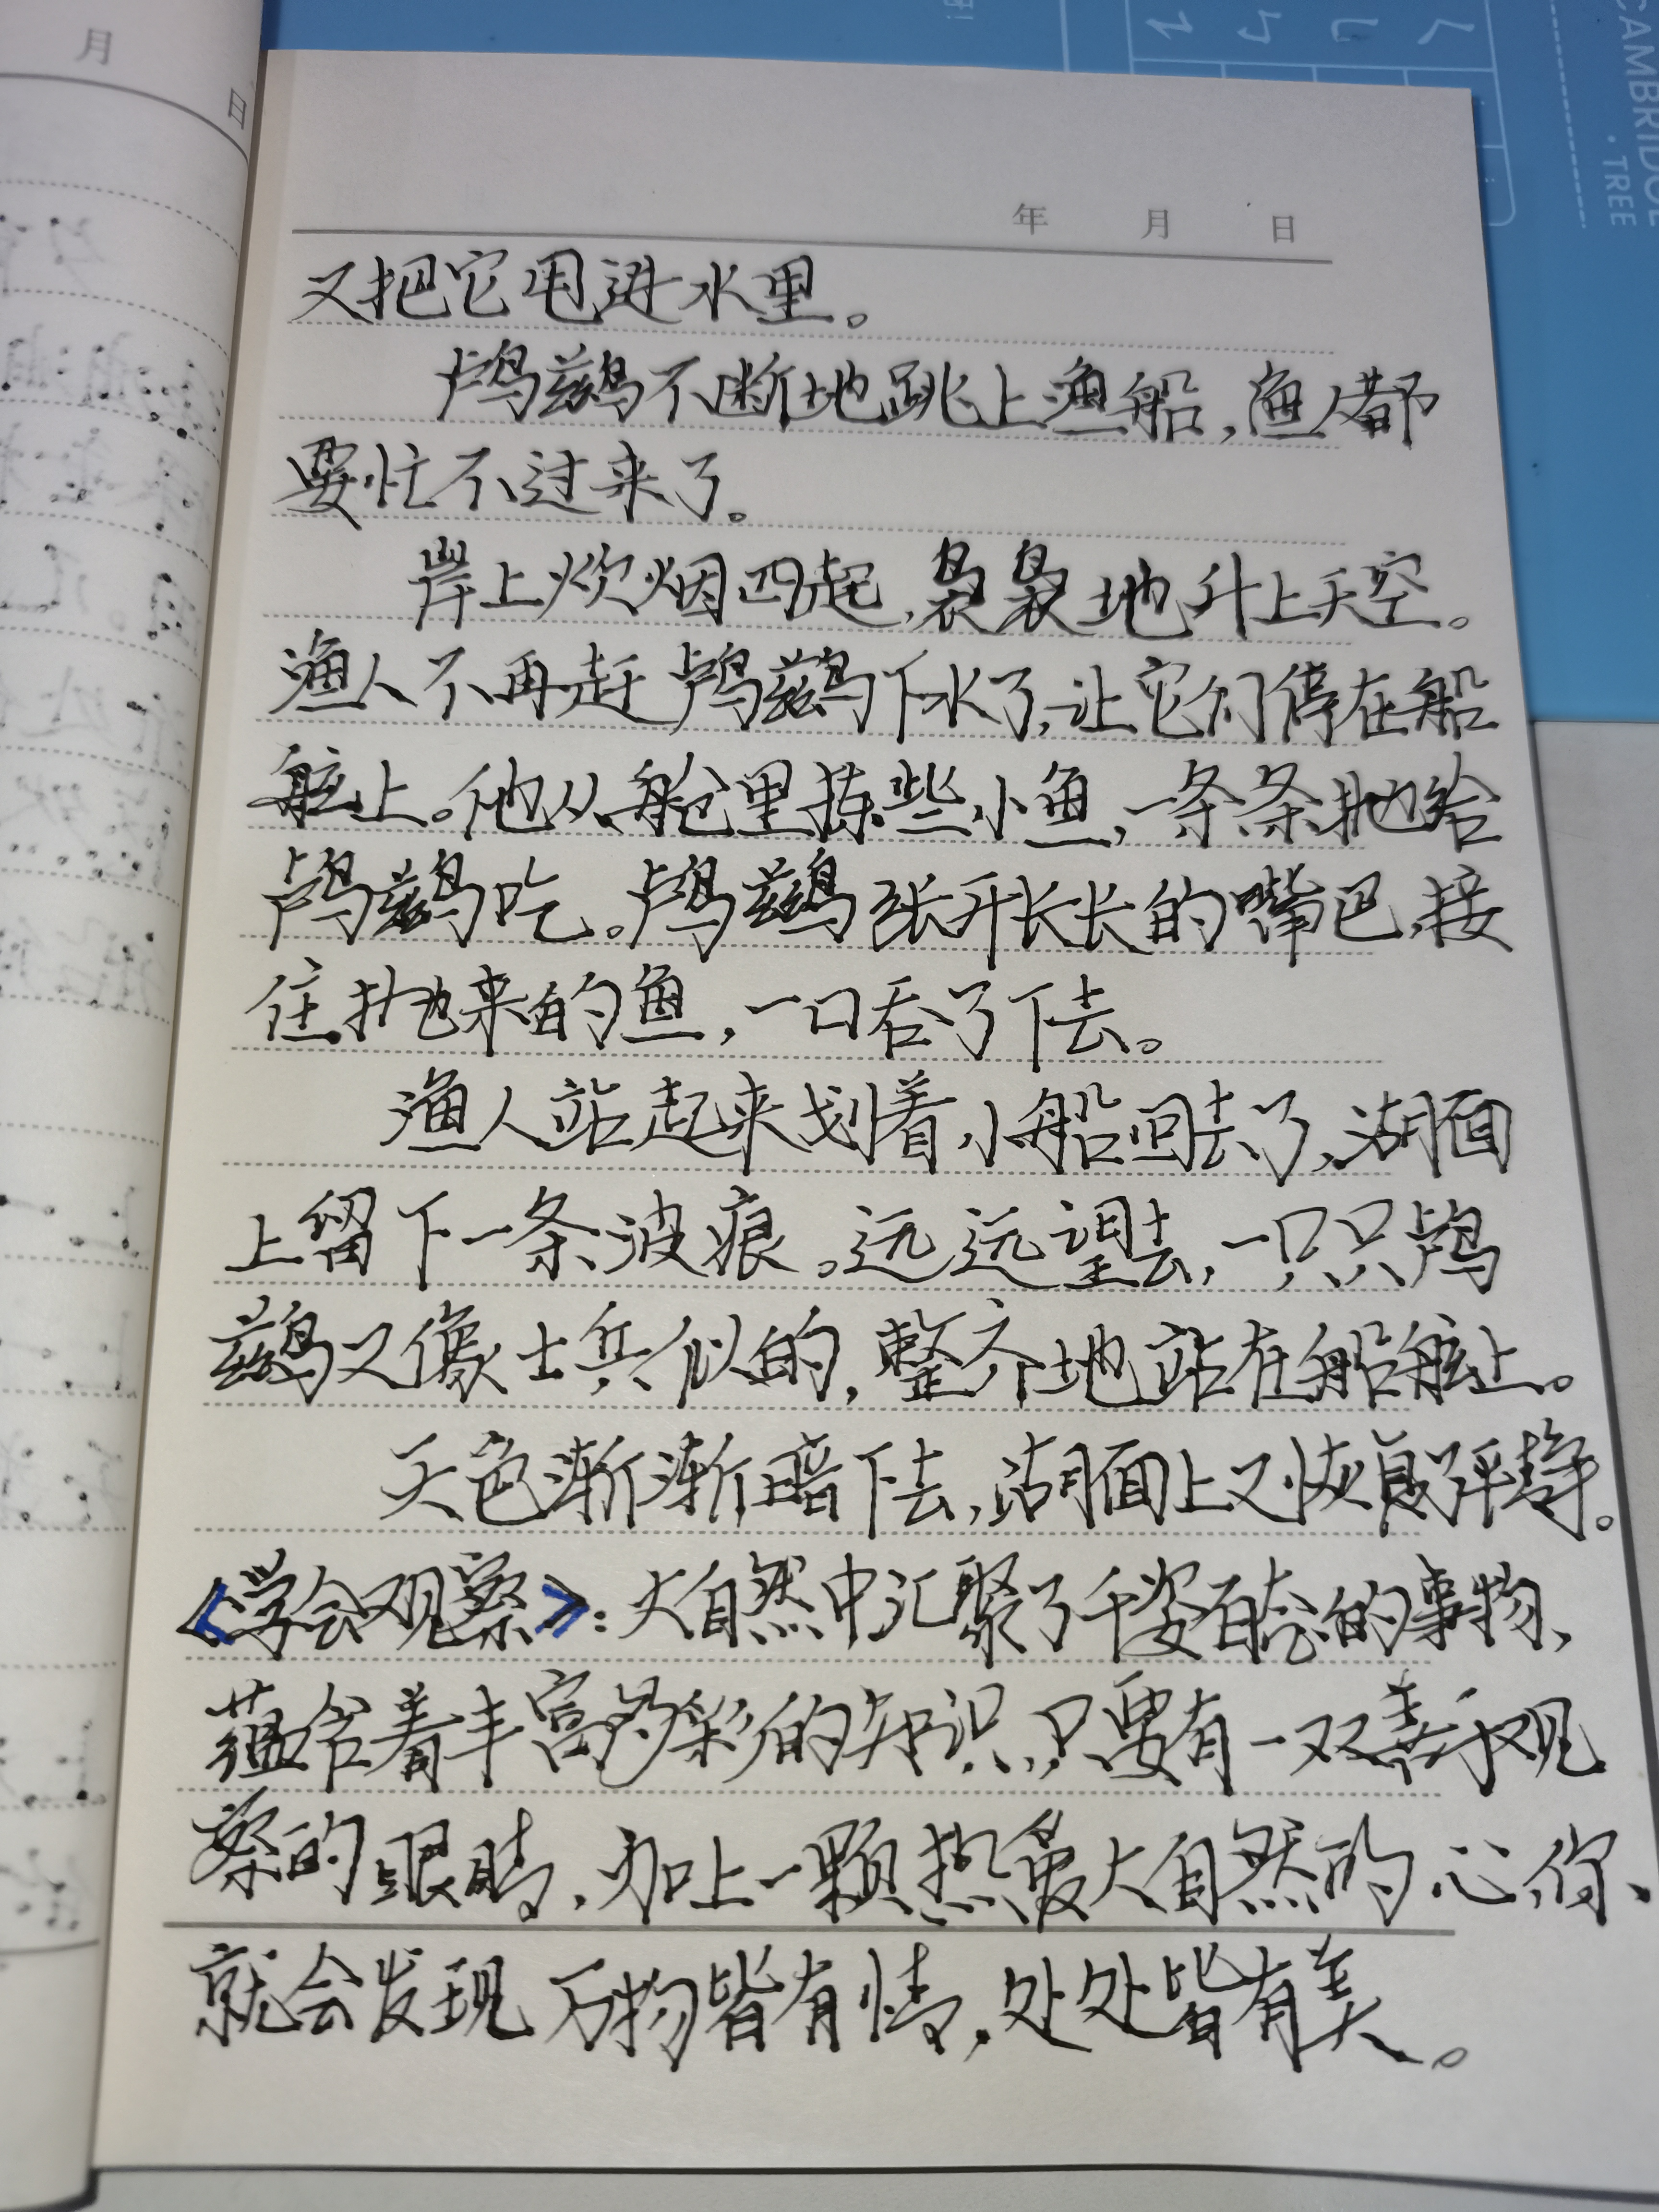 月
日
CAMBRIDGE
·TREE
年 月 日
又把它甩进水里。
鸬鹚不断地跳上渔船,渔人都
要忙不过来了。
岸上炊烟四起,袅袅地升上天空。
渔人不再赶鸬鹚下水了,让它们停在船
舷上。他从舱里拣些小鱼,一条条抛给
鸬鹚吃。鸬鹚张开长长的嘴巴,接
住抛来的鱼,一口吞了下去。
渔人站起来划着小船回去了,湖面
上留下一条波痕。远远望去,一只只鸬
鹚又像士兵似的,整齐地站在船舷上。
天色渐渐暗下去,湖面上又恢复了平静。
《学会观察》:大自然中汇聚了千姿百态的事物,
蕴含着丰富多彩的知识,只要有一双善于观
察的眼睛,加上一颗热爱大自然的心,你、
就会发现万物皆有情,处处皆有美。